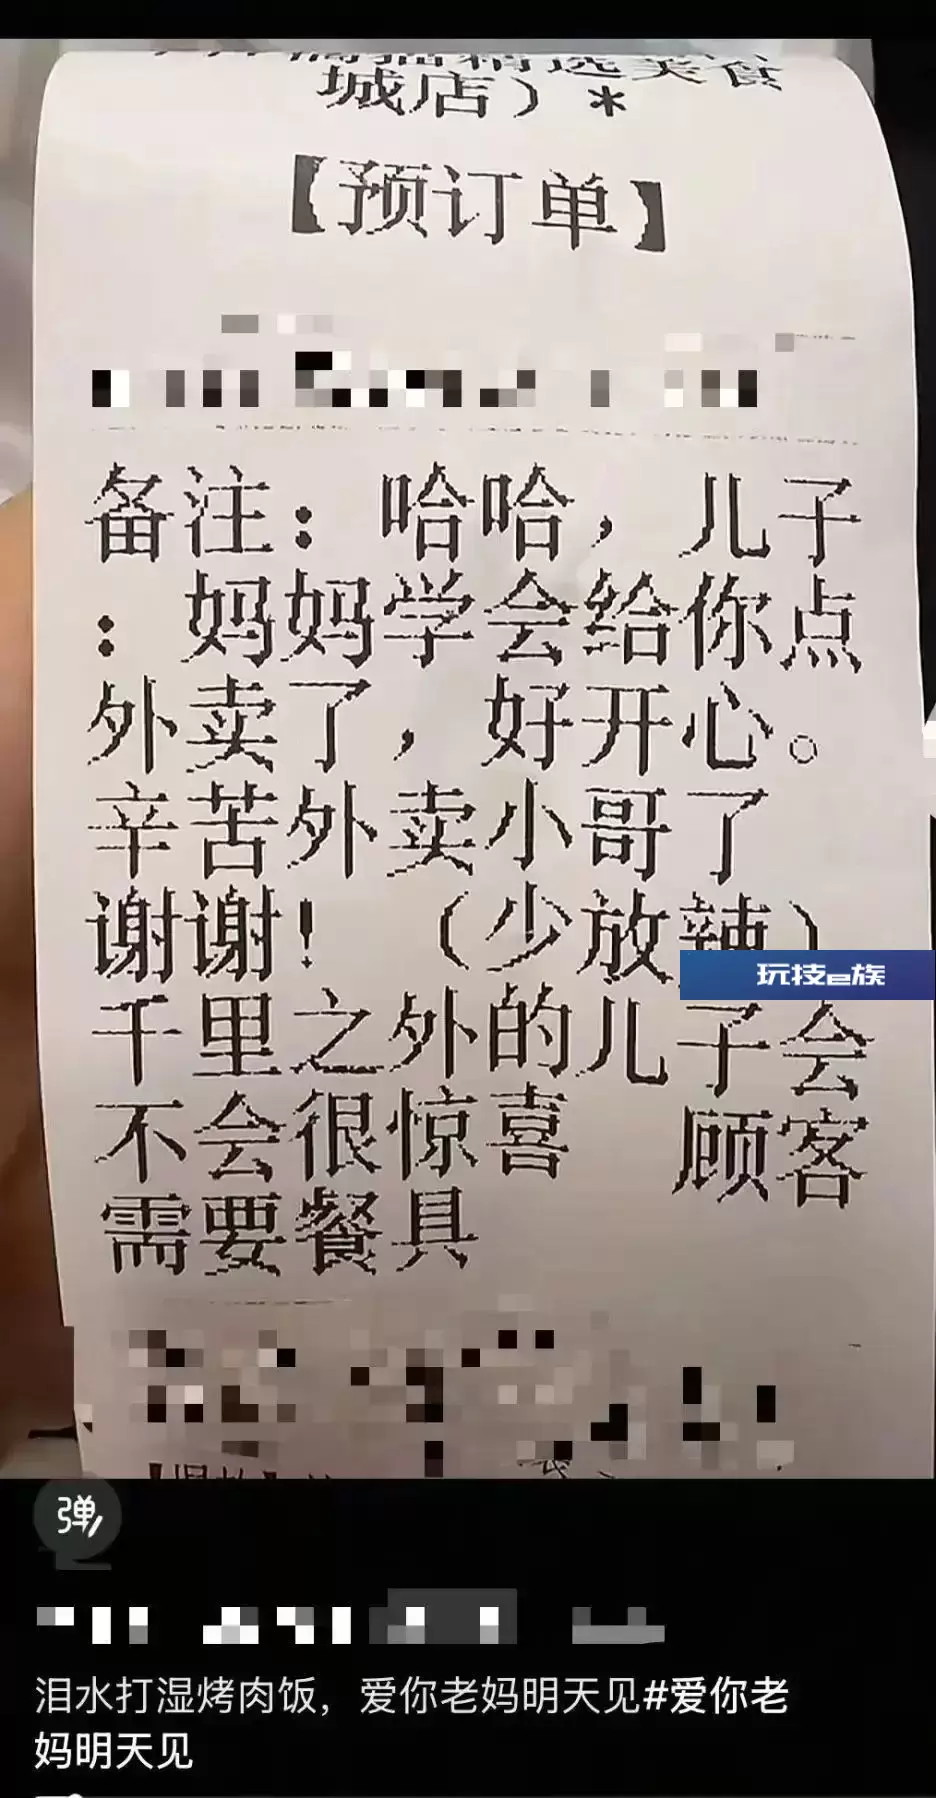 精选美食
城店）*
【预订单】
备注：哈哈，儿子
：妈妈学会给你点
外卖了，好开心。
辛苦外卖小哥了
谢谢！（少放辣）
玩技e族
千里之外的儿子会
不会很惊喜 顾客
需要餐具
弹
泪水打湿烤肉饭，爱你老妈明天见#爱你老
妈明天见